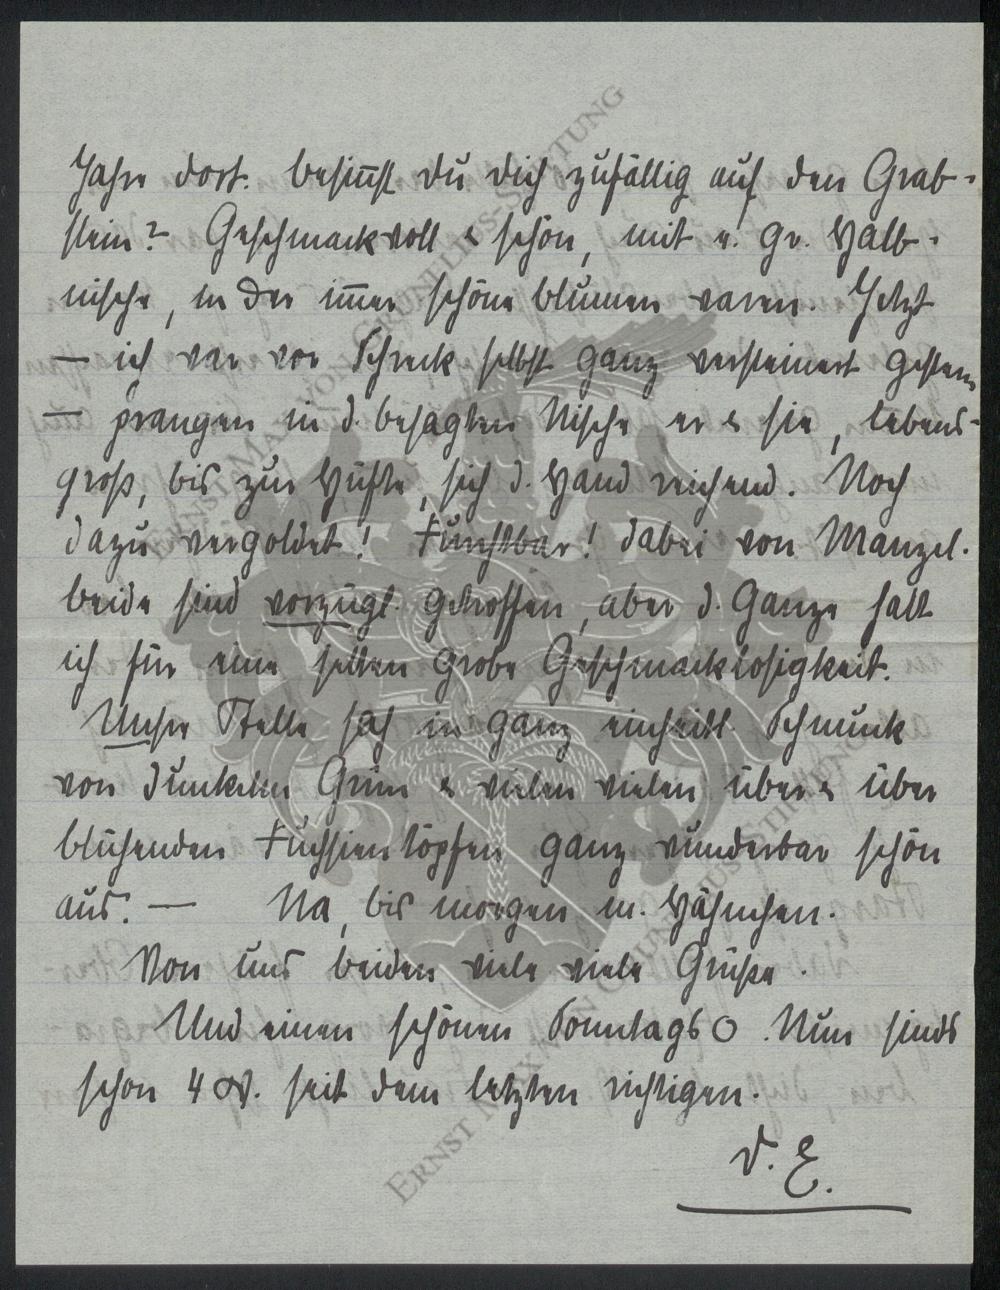 Jahre dort. besinnst du dich zufällig auf den Grab-
stein? Geschmackvoll & schön, mit e. gr. Halb-
nische, in der immer schöne blumen waren. Jetzt
— ich war vor Schreck selbst ganz versteinert gestern
— prangen in d. besagten Nische er & sie, lebens-
groß, bis zur Hüfte, sich d. Hand reichend. Noch
dazu vergoldet! Furchtbar! dabei von Manzel.
beide sind vorzügl. getroffen, aber d. Ganze halt
ich für eine selten grobe Geschmacklosigkeit.
Unsre Stelle sah in ganz einheitl. Schmuck
von dunkelm Grün & vielen vielen über & über
blühenden Fuchsientöpfen ganz wunderbar schön
aus. — Na, bis morgen, m. Hähnchen.
Von uns beiden viele viele Grüße.
Und einen schönen Sonntags O. Nun sinds
schon 4 W. seit dem letzten richtigen.
D. E.
ERNST MAX VON GRUNELIUS-STIFTUNG
ERNST MAX VON GRUNELIUS-STIFTUNG